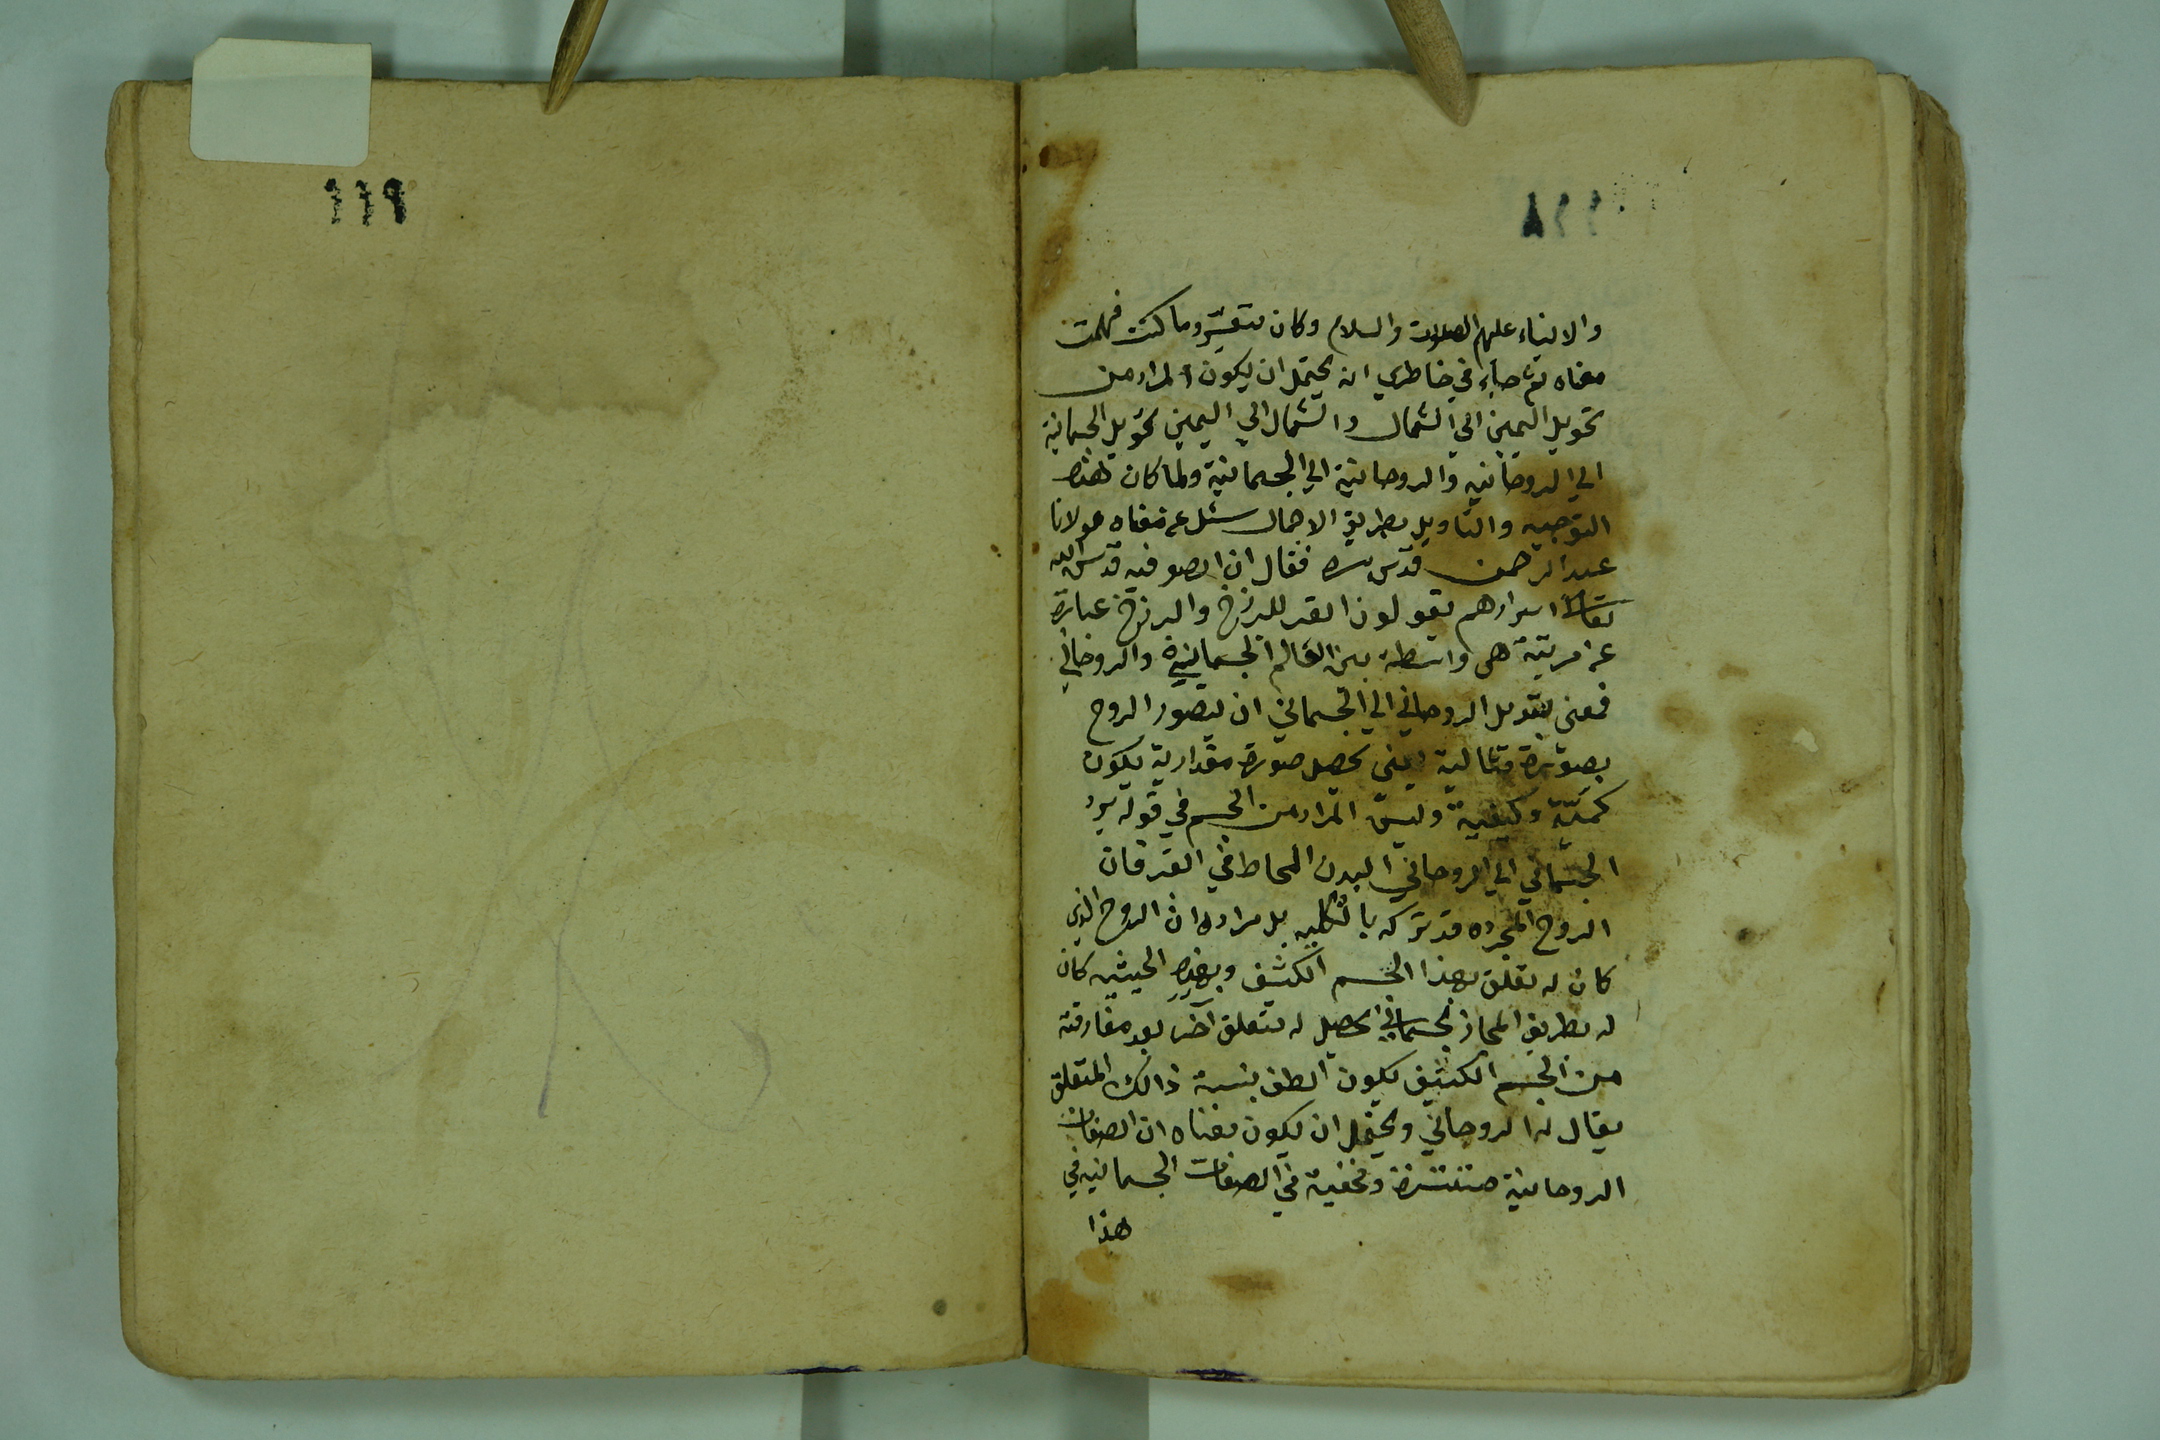 ١١٨
والانبياء عليهم الصلوات والسلام وكان متعسّر وما كنت فهمت
معناه ثم جاء في خاطري انه يحتمل ان يكون المراد من
تحويل اليمين الي الشمال والشمال الي اليمين تحويل الجسمانية
الي الروحانيه والروحانية الي الجسمانية ولما كان هذه
التوجيه والتاويل بطريق الاجمال سئل عن معناه مولانا
عبد الرحمن قدس سره فقال ان الصوفيه قدس الله
تعالى اسرارهم يقولون القبر للبرزخ والبرزخ عبارة
عن مرتبة هي واسطة بين العالم الجسمانية والروحاني
فمعنى تبديل الروحاني الي الجسماني ان يتصور الروح
بصورة مثالية يعني يحصل صورة مقدارية يكون
كميّة وكيفية وليس المراد من الجسم في قوله
الجسماني الي الروحاني البدن المحاط في القبر فان
الروح المجرده قد تركه بالكليه بل مراده ان الروح الذي
كان له تعلق بهذا الجسم الكثيف وبهذه الحيثيه كان
له بطريق المجاز جسماني يحصل له تعلق آخر بعد مفارقته
من الجسم الكثيف يكون الطف بنسبة ذالك المتعلق
يقال له الروحاني ويحتمل ان يكون معناه ان الصفات
الروحانية مستترة ومخفية في الصفات الجسمانيه في
هذا
١١٩